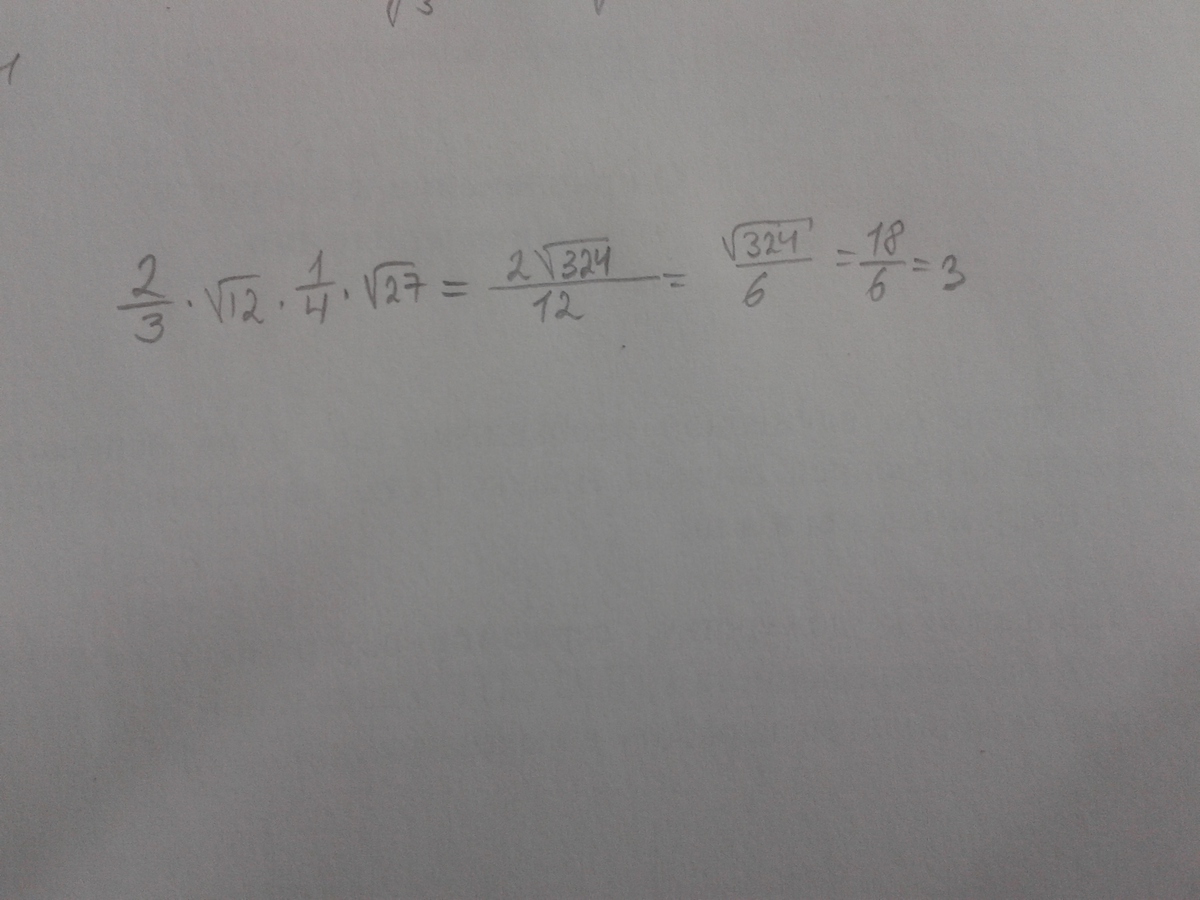 2/3 · √12 · 1/4 · √27 = 2√324/12 = √324/6 = 18/6 = 3